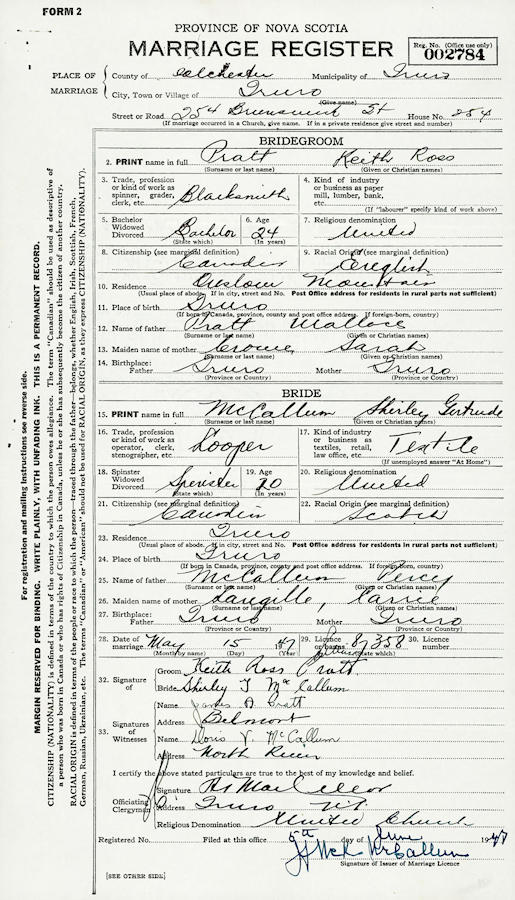 FORM 2
PROVINCE OF NOVA SCOTIA
MARRIAGE REGISTER
Reg. No. (Office use only)
002784
PLACE OF MARRIAGE
County of Colchester Municipality of Truro
City, Town or Village of Truro
(Give name)
Street or Road 254 Brunswick St House No. 254
(If marriage occurred in a Church, give name. If in a private residence give street and number)
BRIDEGROOM
2. PRINT name in full Pratt Keith Ross
(Surname or last name) (Given or Christian names)
3. Trade, profession or kind of work as spinner, grader, clerk, etc. Blacksmith
4. Kind of industry or business as paper mill, lumber, bank, etc.
(If "labourer" specify kind of work above)
5. Bachelor Widowed Divorced Bachelor (State which)
6. Age 24 (In years)
7. Religious denomination United
8. Citizenship (see marginal definition) Canadian
9. Racial Origin (see marginal definition) English
10. Residence Onslow Mountain
(Usual place of abode. If in city, street and No. Post Office address for residents in rural parts not sufficient)
11. Place of birth Truro
(If born in Canada, province, county and post office address. If foreign-born, country)
12. Name of father Pratt Wallace
(Surname or last name) (Given or Christian names)
13. Maiden name of mother Crowe, Sarah
(Surname or last name) (Given or Christian names)
14. Birthplace: Father Truro Mother Truro
(Province or Country) (Province or Country)
BRIDE
15. PRINT name in full McCallum Shirley Gertrude
(Surname or last name) (Given or Christian names)
16. Trade, profession or kind of work as operator, clerk, stenographer, etc. Looper
17. Kind of industry or business as textiles, retail, law office, etc. Textile
(If unemployed answer "At Home")
18. Spinster Widowed Divorced Spinster (State which)
19. Age 20 (In years)
20. Religious denomination United
21. Citizenship (see marginal definition) Canadian
22. Racial Origin (see marginal definition) Scotch
23. Residence Truro
(Usual place of abode. If in city, street and No. Post Office address for residents in rural parts not sufficient)
24. Place of birth Truro
(If born in Canada, province, county and post office address. If foreign-born, country)
25. Name of father McCallum Percy
(Surname or last name) (Given or Christian names)
26. Maiden name of mother Langille, Carrie
(Surname or last name) (Given or Christian names)
27. Birthplace: Father Truro Mother Truro
(Province or Country) (Province or Country)
28. Date of marriage May 15 1947
(Month by name) (Day) (Year)
29. Licence or banns (State which) 87358 30. Licence number
32. Signature of
Groom Keith Ross Pratt
Bride Shirley G McCallum
33. Signatures of Witnesses
Name James D. Pratt
Address Belmont
Name Doris V. McCallum
Address North River
I certify the above stated particulars are true to the best of my knowledge and belief.
Officiating Clergyman
Signature
Address Truro N.S.
Religious Denomination United Church
Registered No. Filed at this office 5th day of June 1947
Signature of Issuer of Marriage Licence
[SEE OTHER SIDE.]
For registration and mailing instructions see reverse side.
MARGIN RESERVED FOR BINDING. WRITE PLAINLY, WITH UNFADING INK. THIS IS A PERMANENT RECORD.
CITIZENSHIP (NATIONALITY) is defined in terms of the country to which the person owes allegiance. The term "Canadian" should be used as descriptive of
a person who was born in Canada or who has rights of Citizenship in Canada, unless he or she has subsequently become the citizen of another country.
RACIAL ORIGIN is defined in terms of the people or race to which the person—traced through the father—belongs, whether English, Irish, Scottish, French,
German, Russian, Ukrainian, etc. The terms "Canadian" or "American" should not be used for RACIAL ORIGIN, as they express CITIZENSHIP (NATIONALITY).